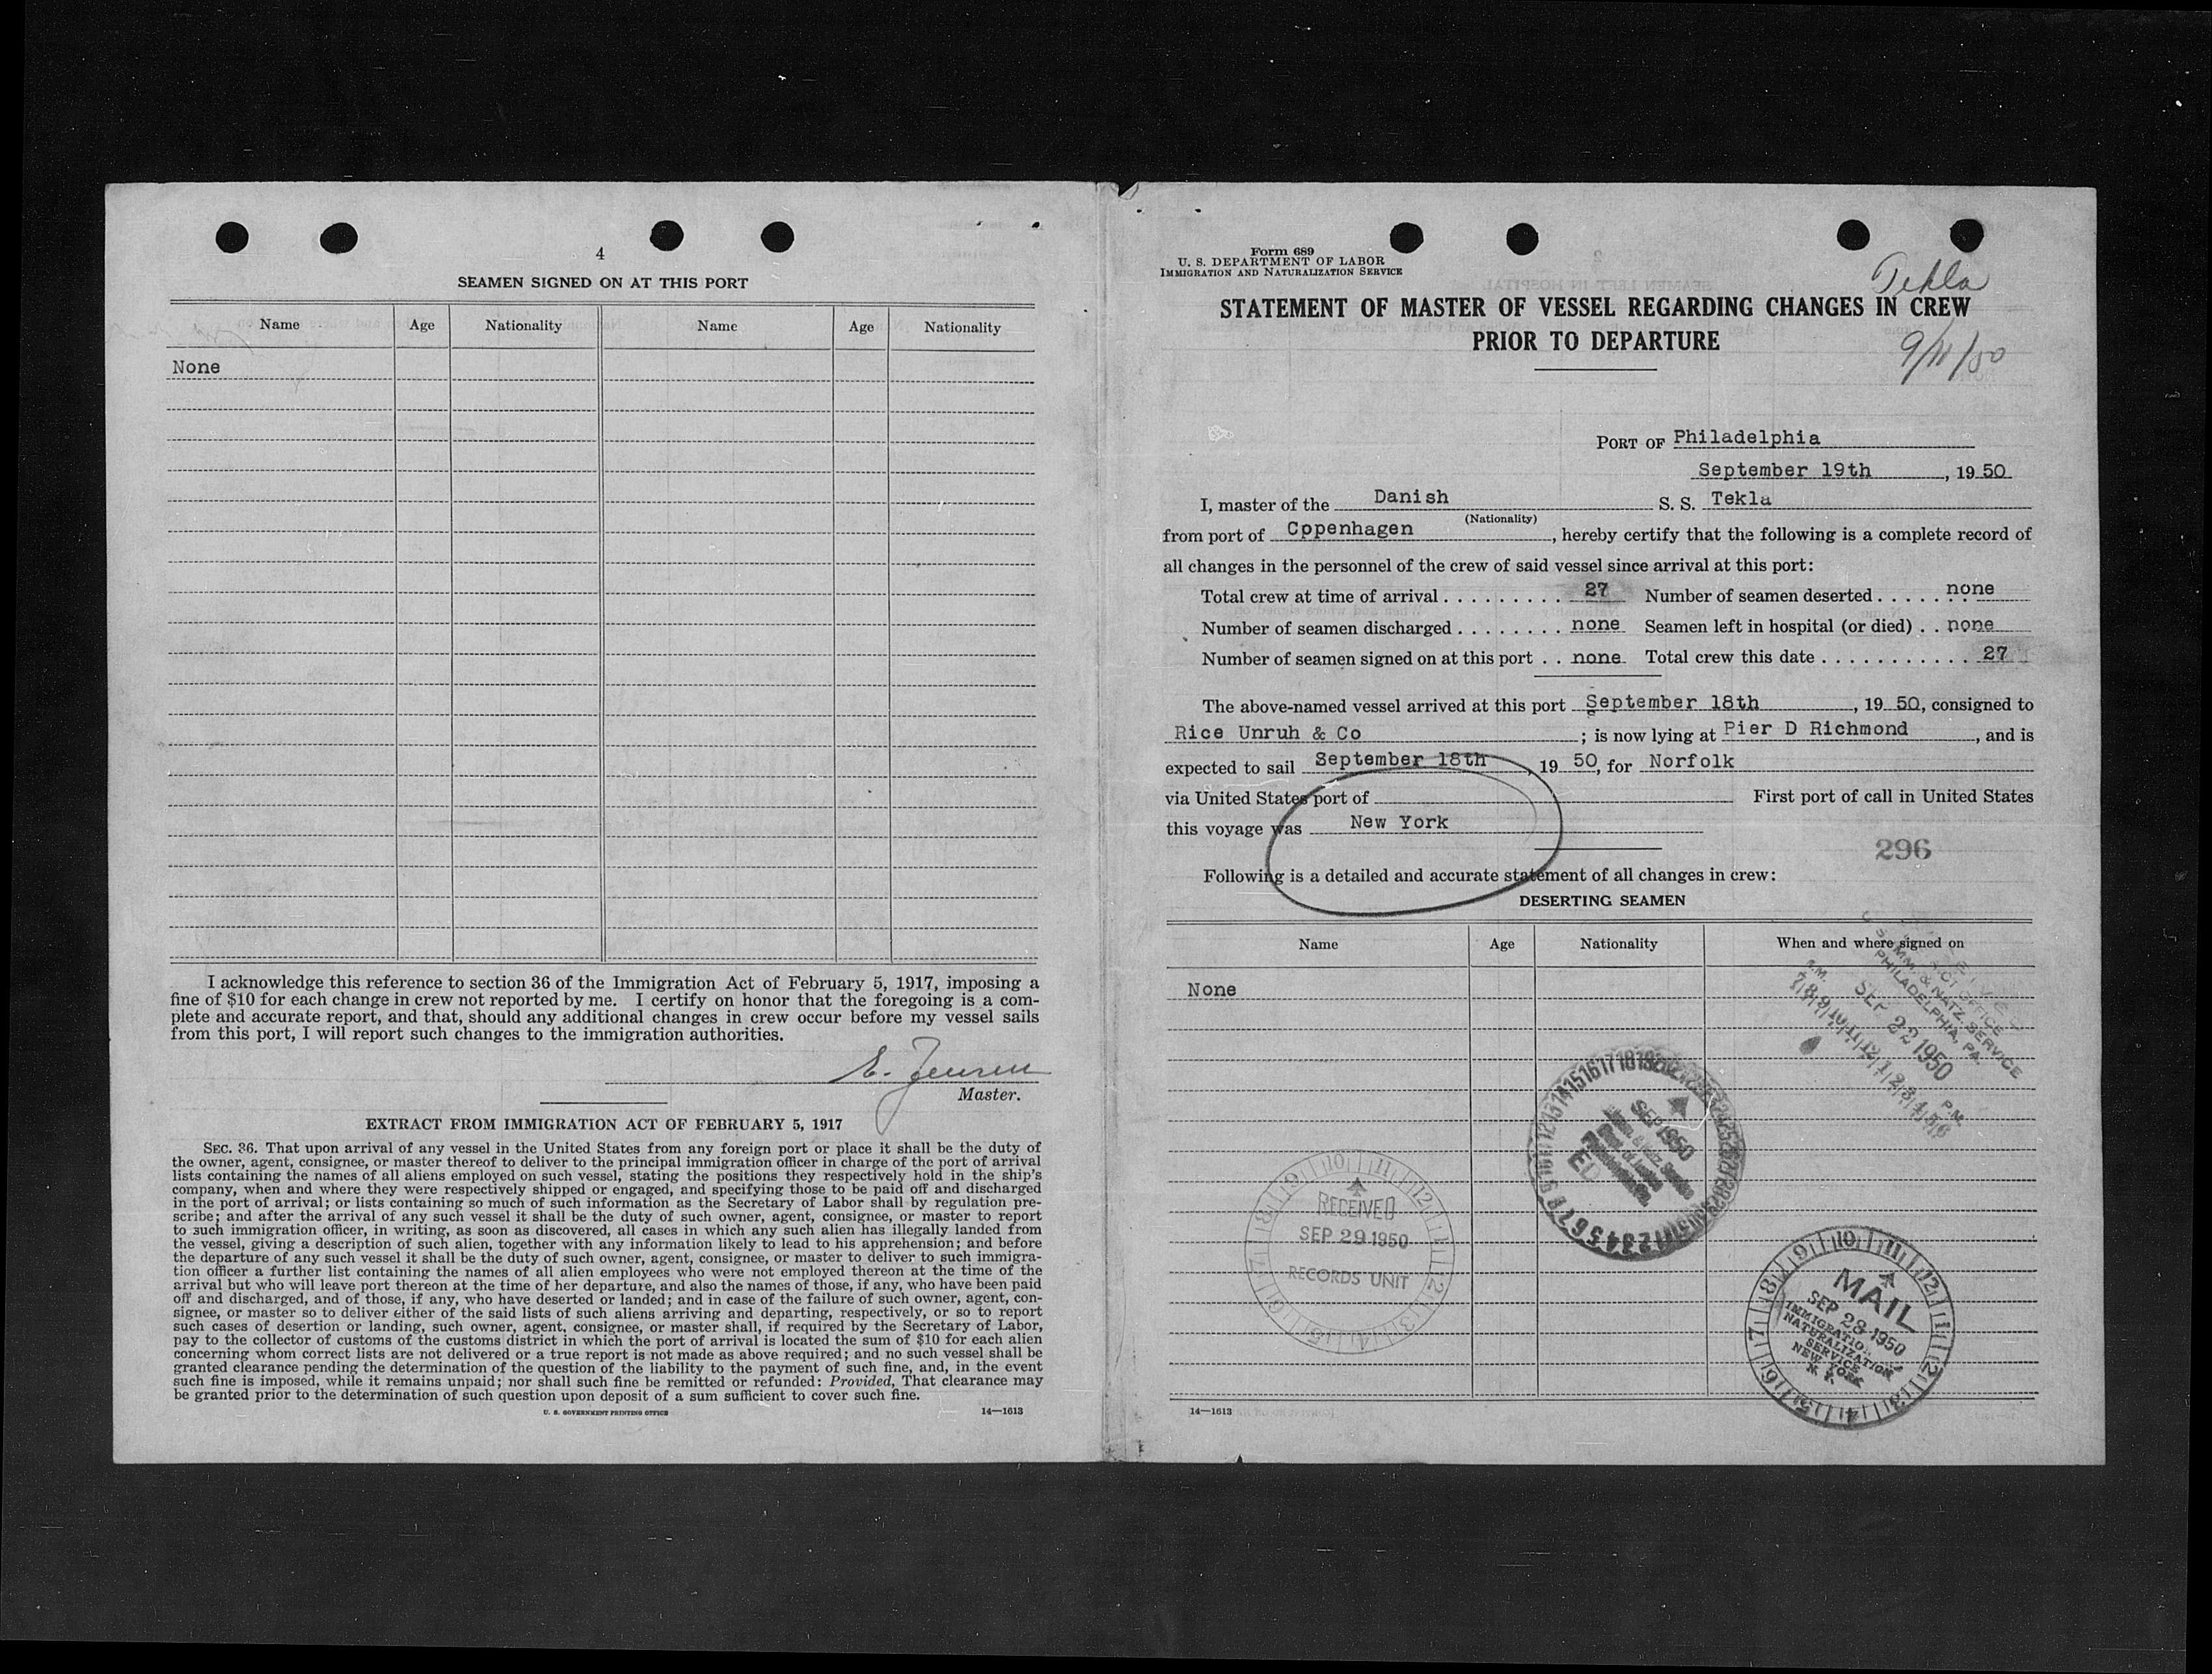 4
SEAMEN SIGNED ON AT THIS PORT
Name Age Nationality Name Age Nationality
None
I acknowledge this reference to section 36 of the Immigration Act of February 5, 1917, imposing a
fine of $10 for each change in crew not reported by me. I certify on honor that the foregoing is a com-
plete and accurate report, and that, should any additional changes in crew occur before my vessel sails
from this port, I will report such changes to the immigration authorities.
E. Jensen
Master.
EXTRACT FROM IMMIGRATION ACT OF FEBRUARY 5, 1917
SEC. 36. That upon arrival of any vessel in the United States from any foreign port or place it shall be the duty of
the owner, agent, consignee, or master thereof to deliver to the principal immigration officer in charge of the port of arrival
lists containing the names of all aliens employed on such vessel, stating the positions they respectively hold in the ship's
company, when and where they were respectively shipped or engaged, and specifying those to be paid off and discharged
in the port of arrival; or lists containing so much of such information as the Secretary of Labor shall by regulation pre-
scribe; and after the arrival of any such vessel it shall be the duty of such owner, agent, consignee, or master to report
to such immigration officer, in writing, as soon as discovered, all cases in which any such alien has illegally landed from
the vessel, giving a description of such alien, together with any information likely to lead to his apprehension; and before
the departure of any such vessel it shall be the duty of such owner, agent, consignee, or master to deliver to such immigra-
tion officer a further list containing the names of all alien employees who were not employed thereon at the time of the
arrival but who will leave port thereon at the time of her departure, and also the names of those, if any, who have been paid
off and discharged, and of those, if any, who have deserted or landed; and in case of the failure of such owner, agent, con-
signee, or master so to deliver either of the said lists of such aliens arriving and departing, respectively, or so to report
such cases of desertion or landing, such owner, agent, consignee, or master shall, if required by the Secretary of Labor,
pay to the collector of customs of the customs district in which the port of arrival is located the sum of $10 for each alien
concerning whom correct lists are not delivered or a true report is not made as above required; and no such vessel shall be
granted clearance pending the determination of the question of the liability to the payment of such fine, and, in the event
such fine is imposed, while it remains unpaid; nor shall such fine be remitted or refunded: Provided, That clearance may
be granted prior to the determination of such question upon deposit of a sum sufficient to cover such fine.
U. S. GOVERNMENT PRINTING OFFICE 14—1613
Form 689
U. S. DEPARTMENT OF LABOR
IMMIGRATION AND NATURALIZATION SERVICE
Tekla
STATEMENT OF MASTER OF VESSEL REGARDING CHANGES IN CREW
PRIOR TO DEPARTURE
9/11/50
PORT OF Philadelphia
September 19th, 19 50
I, master of the Danish S. S. Tekla
(Nationality)
from port of Cppenhagen, hereby certify that the following is a complete record of
all changes in the personnel of the crew of said vessel since arrival at this port:
Total crew at time of arrival . . . . . . . . . 27 Number of seamen deserted . . . . . none
Number of seamen discharged . . . . . . . . none Seamen left in hospital (or died) . . none
Number of seamen signed on at this port . . none Total crew this date . . . . . . . . . . . . 27
The above-named vessel arrived at this port September 18th, 19 50, consigned to
Rice Unruh & Co ; is now lying at Pier D Richmond, and is
expected to sail September 18th, 19 50, for Norfolk
via United States port of First port of call in United States
this voyage was New York
296
Following is a detailed and accurate statement of all changes in crew:
DESERTING SEAMEN
Name Age Nationality When and where signed on
None
IMM. & NATZ. SERVICE
PHILADELPHIA, PA.
SEP 22 1950
A.M. 7 8 9 10 11 12 1 2 3 4 5 6 P.M.
SEP 1950
RECEIVED
SEP 29 1950
RECORDS UNIT
MAIL
SEP 28 1950
IMMIGRATION
NATURALIZATION
SERVICE
NEW YORK
N. Y.
14—1613